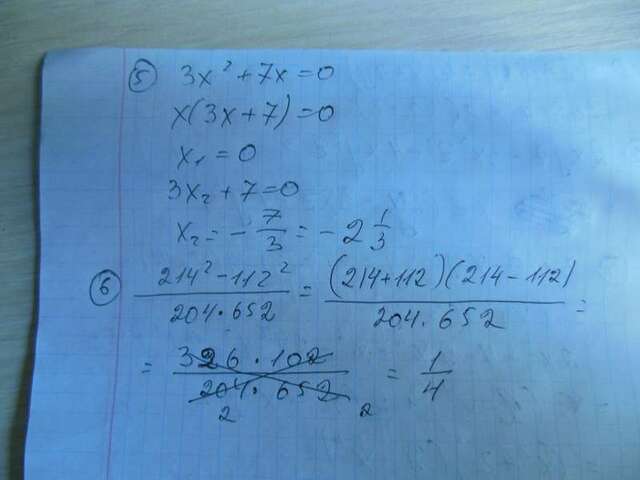 5 3x² + 7x = 0
x(3x + 7) = 0
x₁ = 0
3x₂ + 7 = 0
x₂ = - 7/3 = - 2 1/3
6 (214² - 112²)/(204 · 652) = ((214 + 112)(214 - 112))/(204 · 652) =
= (326 · 102)/(204 · 652) = 1/4
2 2